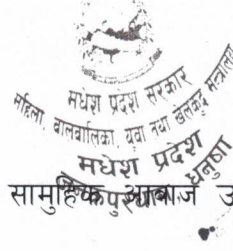 मधेश प्रदेश सरकार
महिला, बालबालिका, युवा तथा खेलकुद मन्त्रालय
मधेश प्रदेश
धनुषा
सामुहिक आबाज उ